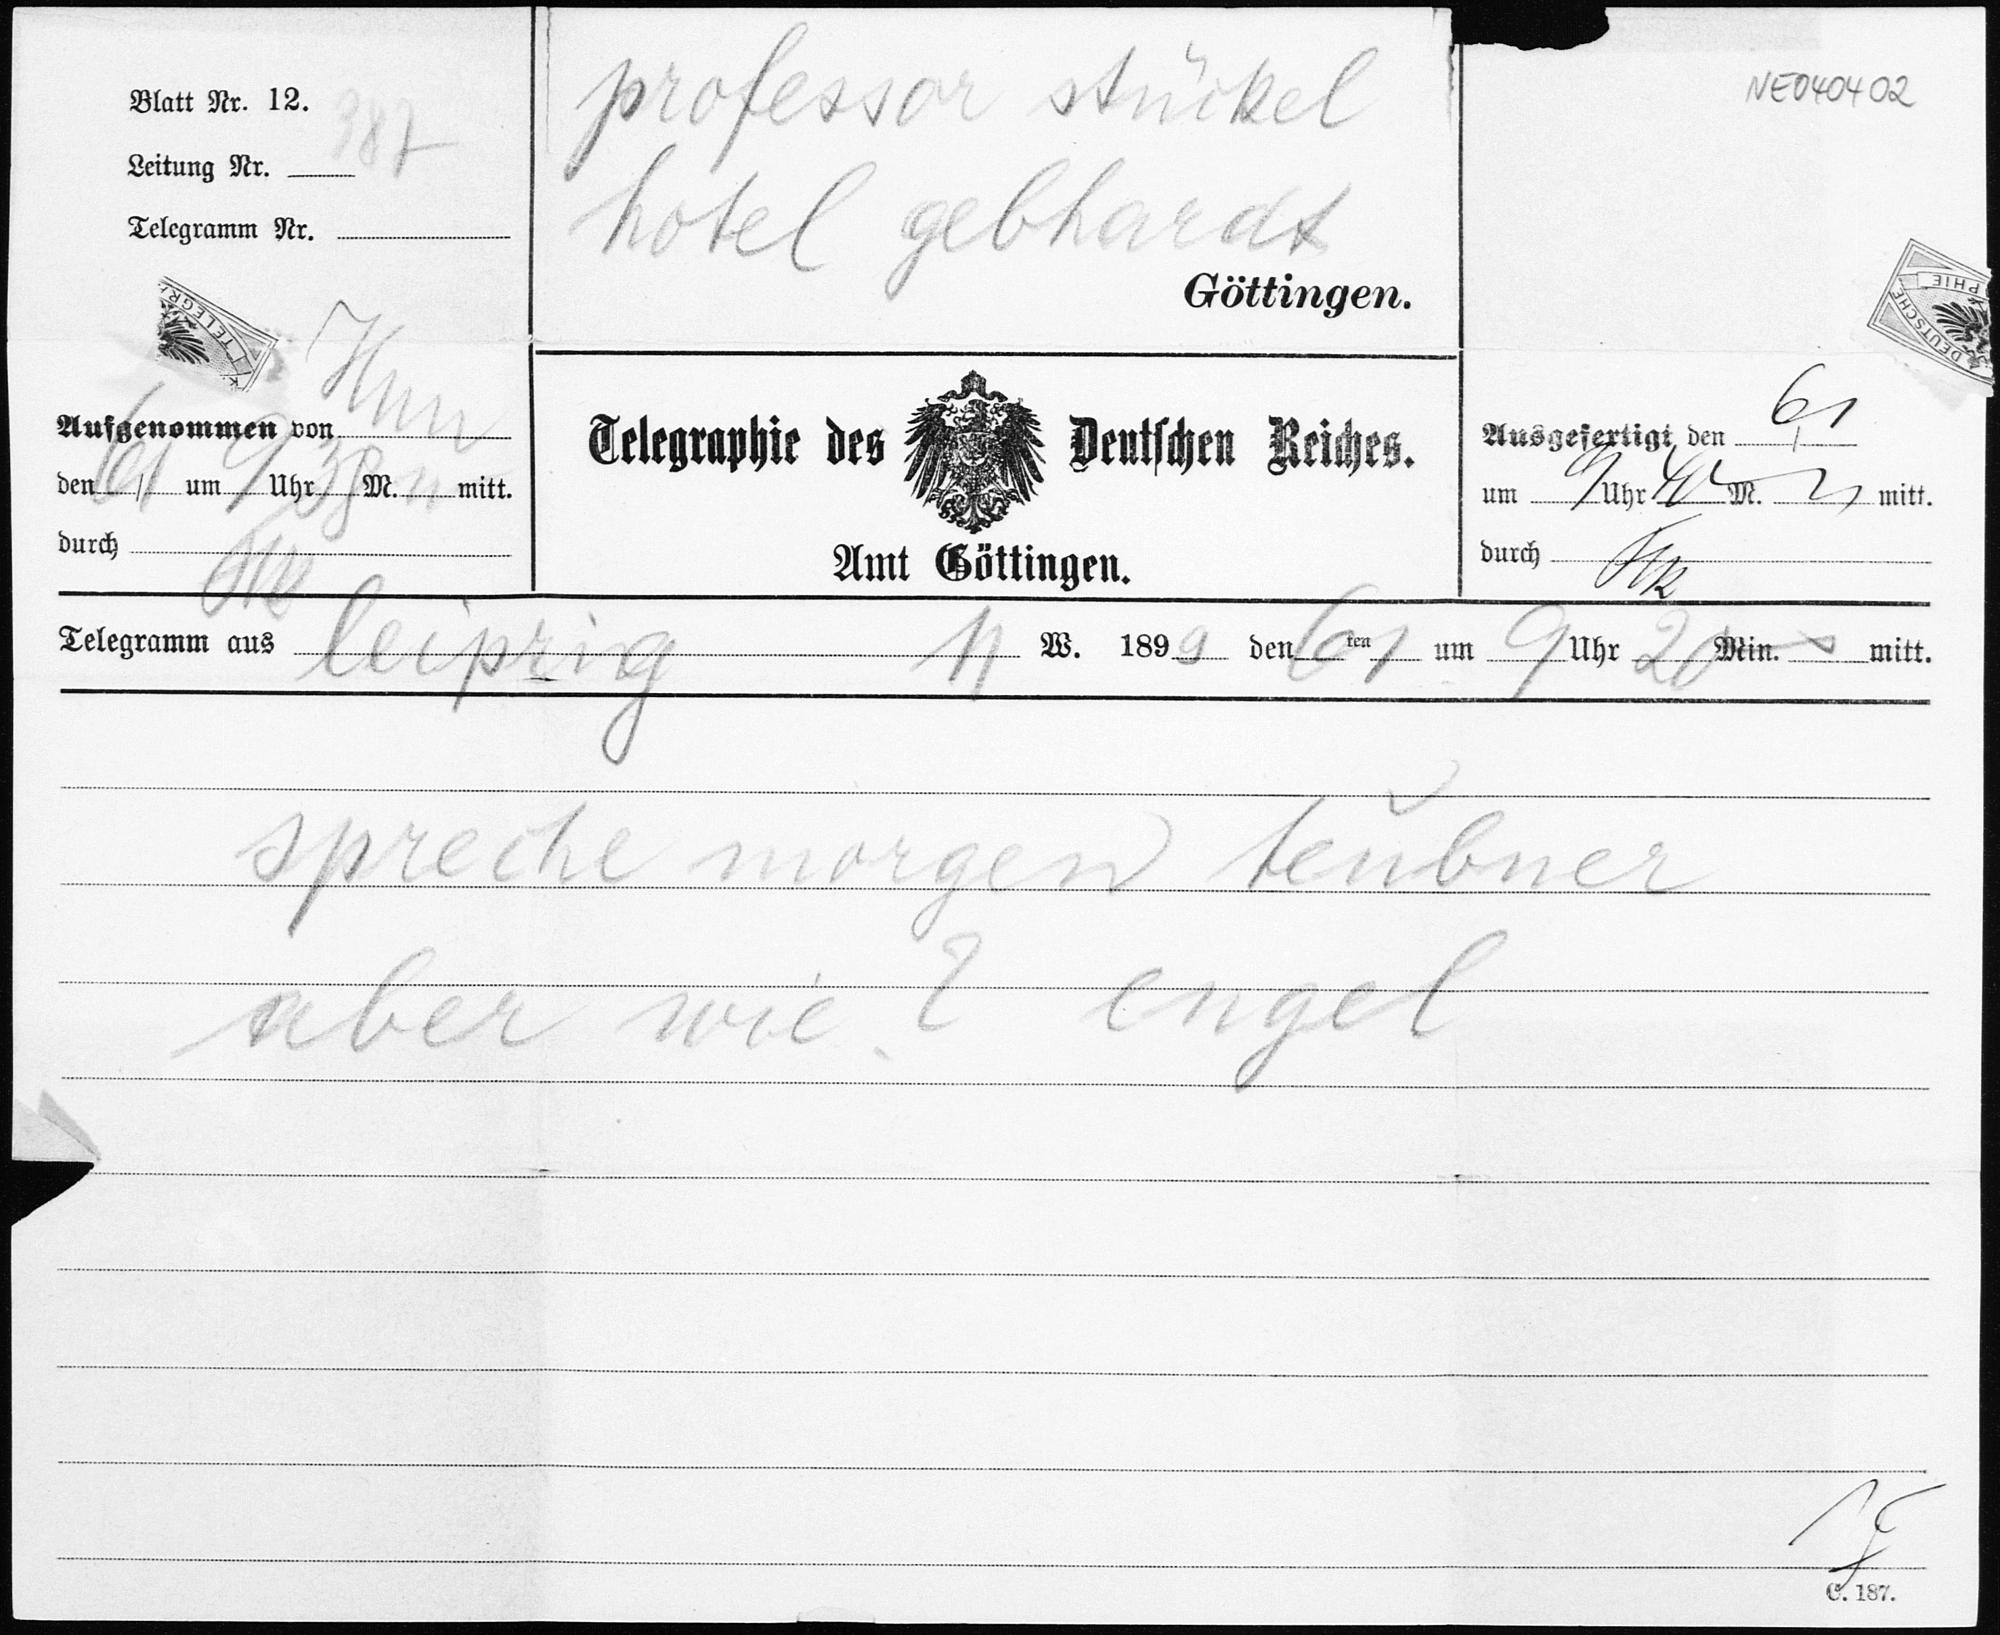 Blatt Nr. 12.
387
Leitung Nr.
Telegramm Nr.
professor stückel
hotel gebhardt
Göttingen.
NE040402
TELEGRA
DEUTSCHE
PHIE
Aufgenommen von
den 6/1 um 9 Uhr 38 M. mitt.
durch
Telegraphie des Deutschen Reiches.
Amt Göttingen.
Ausgefertigt den 6/1
um 9 Uhr 40 M. mitt.
durch
Telegramm aus leipzig 11 W. 1899 den 6ten 1 um 9 Uhr 20 Min. s mitt.
spreche morgen teŭbner
aber wie ? engel
C. 187.